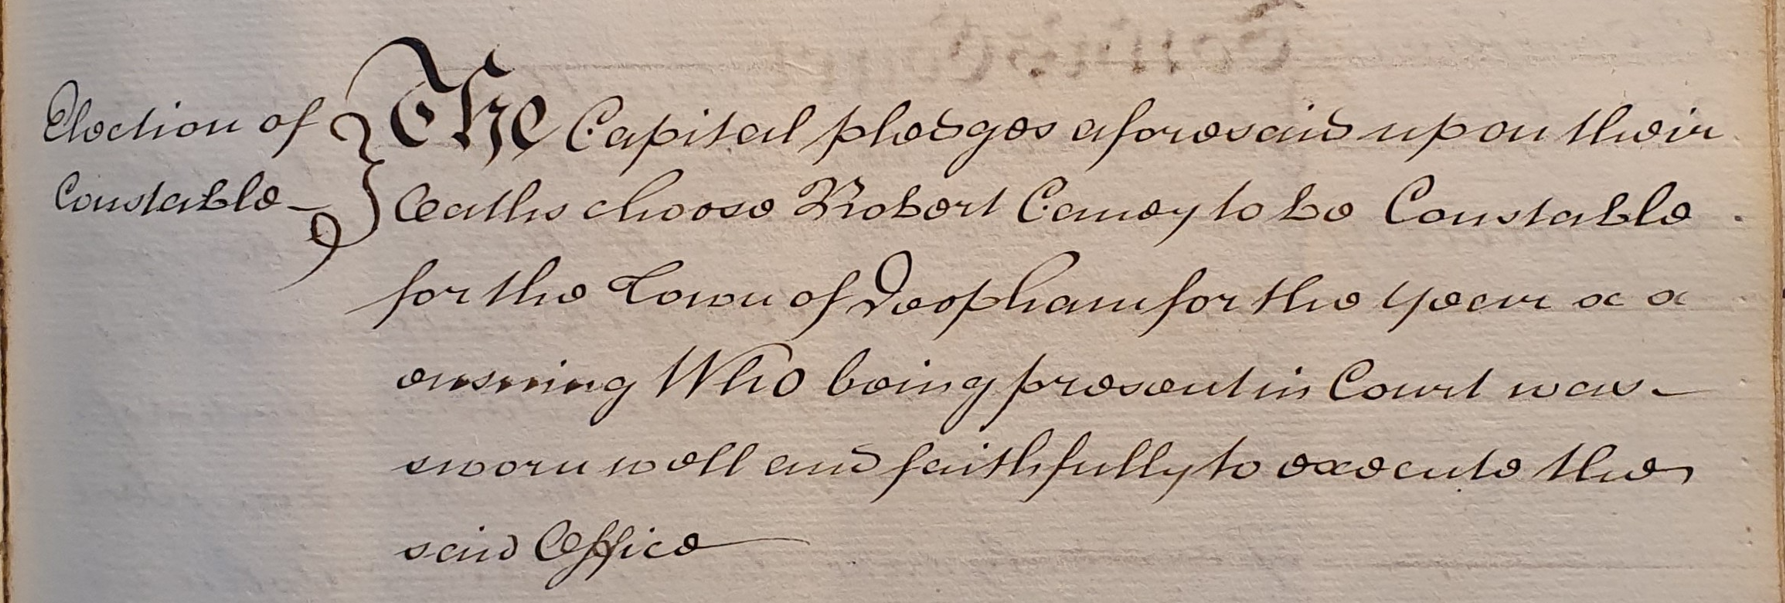 Election of
Constable
The Capital pledges aforesaid upon their
Oaths choose Robert Caney to be Constable
for the Town of Deopham for the Year
ensuing Who being present in Court was
sworn well and faithfully to execute the
said Office